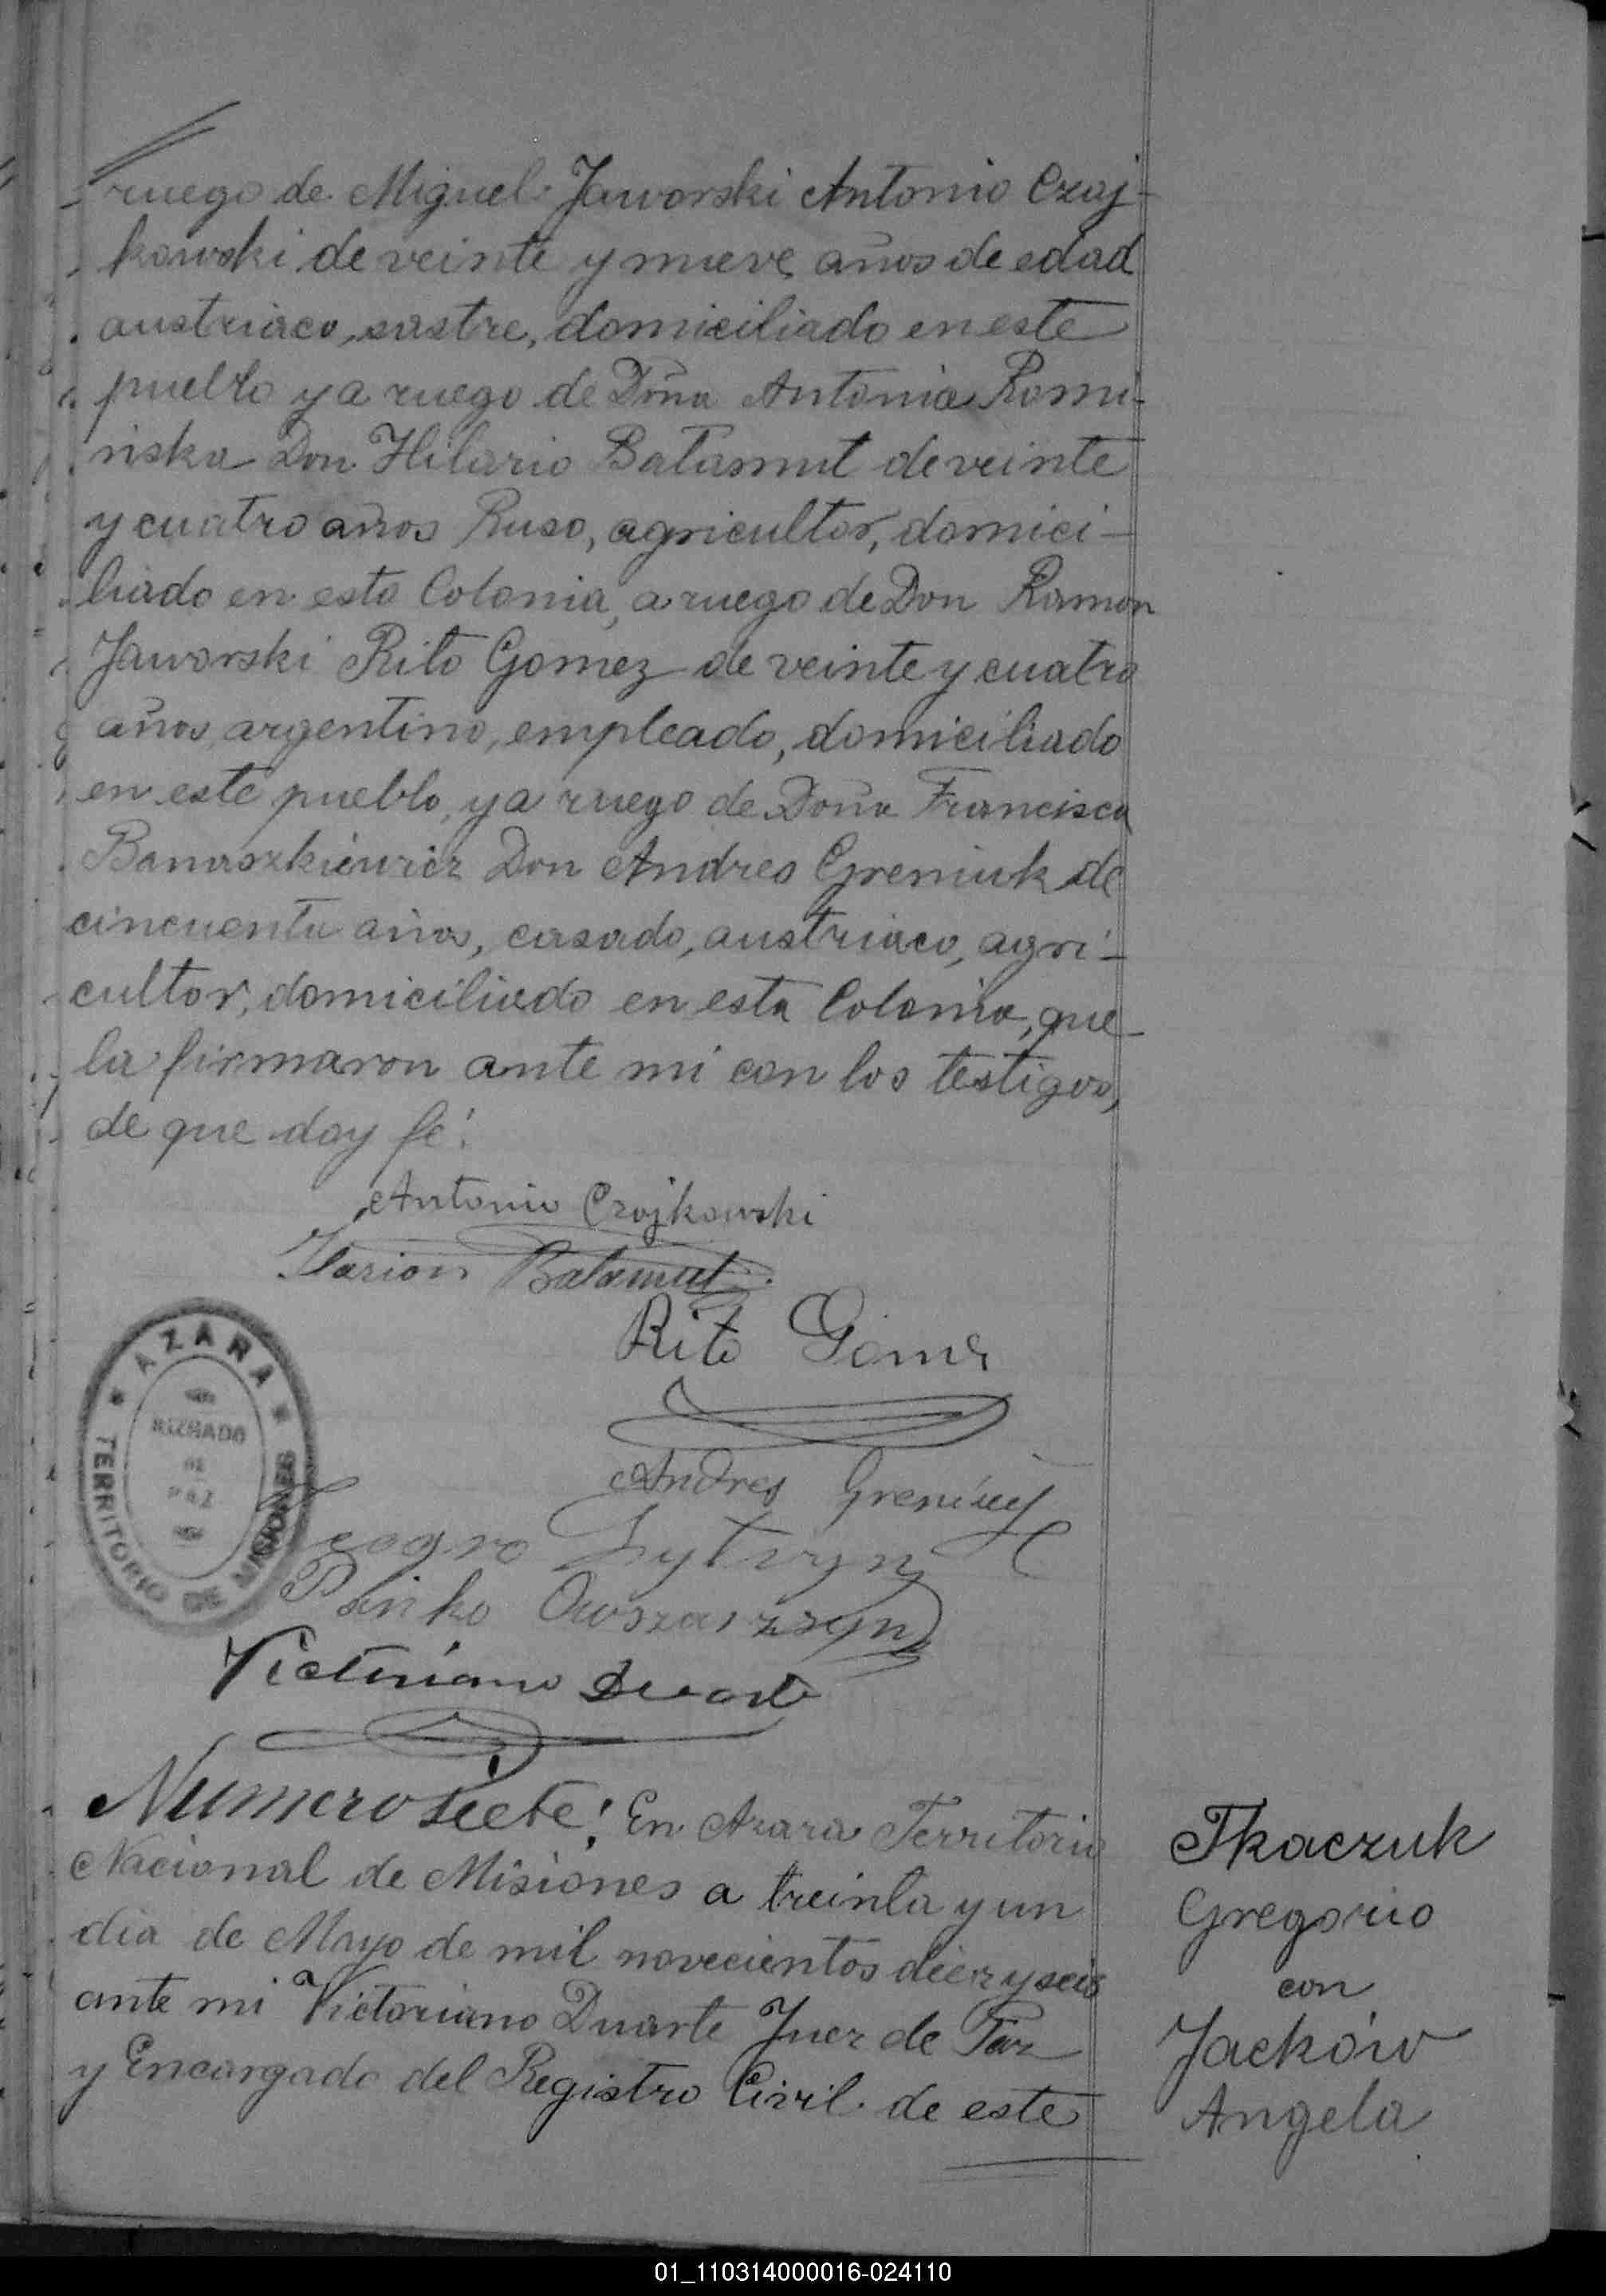 ruego de Miguel Jaworski Antonio Czaj-
kowski de veinte y nueve años de edad
austriaco, sastre, domiciliado en este
pueblo y a ruego de Doña Antonia Romi-
nska Don Hilario Batamut de veinte
y cuatro años Ruso, agricultor, domici-
liado en esta Colonia, a ruego de Don Ramon
Jaworski Rito Gomez de veinte y cuatro
años, argentino, empleado, domiciliado
en este pueblo, y a ruego de Doña Francisca
Banaszkiewicz Don Andres Greniuk de
cincuenta años, casado, austriaco, agri-
cultor, domiciliado en esta Colonia, que
la firmaron ante mi con los testigos,
de que doy fé.
Antonio Czajkowski
Ilarion Batamut
Rito Gomez
Andres
Lytvyn
Victoriano Duarte
AZARA
JUZGADO
DE
PAZ
TERRITORIO DE MISIONES
Numero siete: En Azara Territorio
Nacional de Misiones a treinta y un
dia de Mayo de mil novecientos diez y seis
ante mi Victoriano Duarte Juez de Paz
y Encargado del Registro Civil de este
Tkaczuk
Gregorio
con
Jacków
Angela
01_110314000016-024110